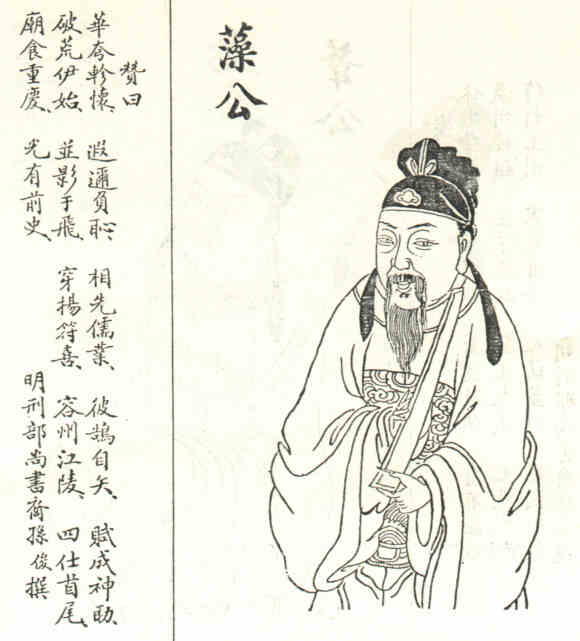 藻公
贊曰
華夸軫懷、遐邇負恥、相先儒業、彼鵠自矢、賦成神助、
破荒伊始、並影于飛、穿揚符喜、容州江陵、四仕首尾、
廟食重慶、光有前史、
明刑部尚書裔孫俊撰